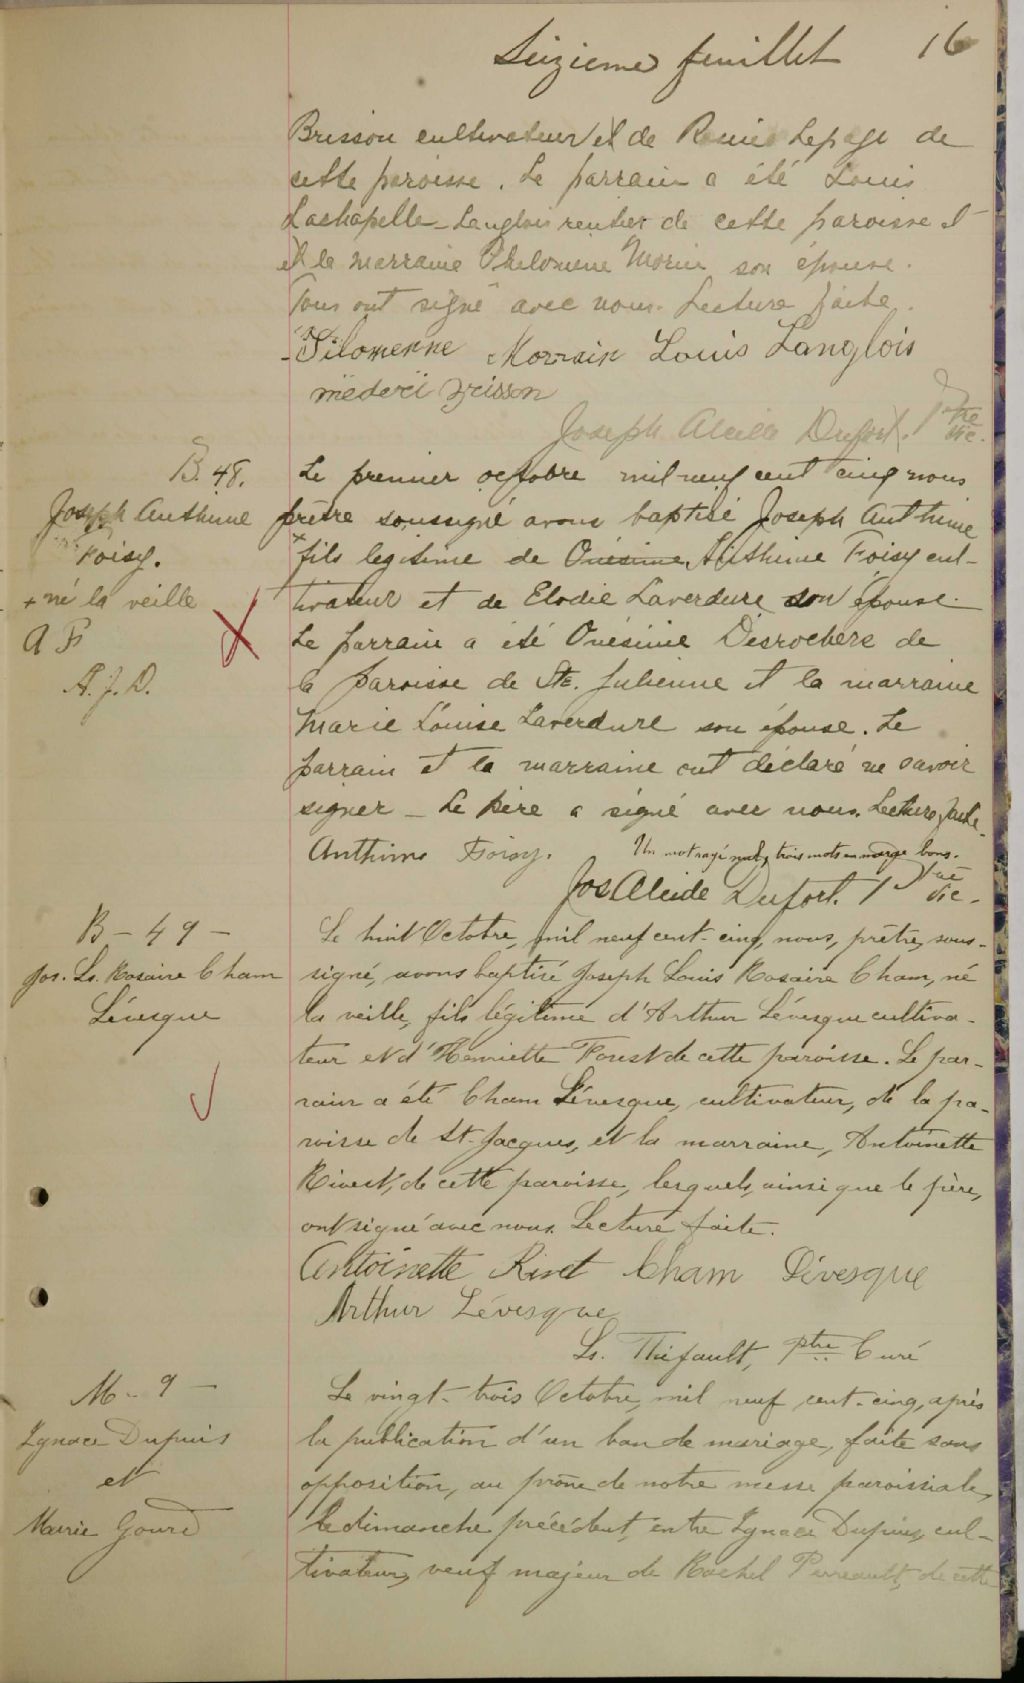 Seizieme feuillet 16
Brisson cultivateur et de Lepage de
cette paroisse. Le parrain a été Louis
Lachapelle-Langlois rentier de cette paroisse et
et la marraine Philomene Morin son épouse.
Tous ont signé avec nous. Lecture faite.
Filomenne Morrain Louis Langlois
mederi Brisson
Joseph Alcide Dufort. Ptre
vic.
B. 48.
Joseph Anthime
Foisy.
+ né la veille
A F
A. J. D.
Le premier octobre mil neuf cent cinq nous
prêtre soussigné avons baptisé Joseph Anthime
+ fils legitime de Onésime Anthime Foisy cul-
tivateur et de Elodie Laverdure son épouse.
Le parrain a été Onésime Desrochers de
la paroisse de Ste. Julienne et la marraine
Marie Louise Laverdure son épouse. Le
parrain et la marraine ont déclaré ne savoir
signer - Le père a signé avec nous. Lecture faite.
Anthime Foisy. Un mot rayé nul, trois mots en marge bons.
Jos Alcide Dufort. Ptre
vic.
B - 49 -
Jos. Ls. Rosaire Cham
Lévesque
Le huit Octobre, mil neuf cent-cinq, nous, prêtre, sous-
signé, avons baptisé Joseph Louis Rosaire Cham, né
la veille, fils légitime d'Arthur Lévesque cultiva-
teur et d'Henriette Forest de cette paroisse. Le par-
rain a été Cham Lévesque, cultivateur, de la pa-
roisse de St-Jacques, et la marraine, Antoinette
Rivest, de cette paroisse, lesquels, ainsi que le père,
ont signé avec nous. Lecture faite.
Antoinette Rivet Cham Lévesque
Arthur Lévesque
Ls. Thifault, ptre Curé
M - 9 -
Ignace Dupuis
et
Marie Gourd
Le vingt-trois Octobre, mil neuf cent-cinq, après
la publication d'un ban de mariage, faite sans
opposition, au prône de notre messe paroissiale,
le dimanche précédent, entre Ignace Dupuis, cul-
tivateur, veuf majeur de Rachel Perreault, de cette